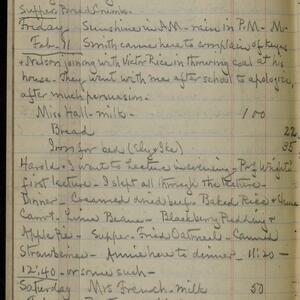 Supper. Bread Crumbs.
Friday Sunshine in A.M. - rain in P.M. - M-
Feb. 11 Smith came here to complain of Keyes
+ Nelson joining with Victor Rice in throwing coal at his
house. They went with me after school to apologize,
after much persuasion.
Miss Hall - milk - 1 00
Bread 22
Iron for bed (Cly + Ike) 35
Harold + I went to Lecture in evening - Prof Wright's
first lecture - I slept all through the lecture -
Dinner - Creamed dried beef - Baked Rice +
Carrot - Lima Beans - Blackberry Pudding +
Apple Pie - Supper - Fried Oatmeal - Canned
Strawberries - Annie here to dinner - 11:20 -
12:40 - or some such -
Saturday Mrs French - Milk 50